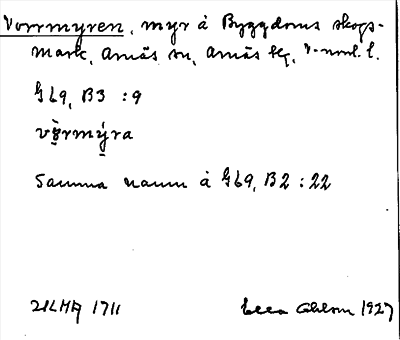 Vorrmyren, myr å Byggdoms skogs-
mark, Arnäs sn, Arnäs tg, V-norrl. l.
G 69, B3 : 9
vò̤rmý̤ra
Samma namn å G 69, B2 : 22
1711
Ohlson 1927